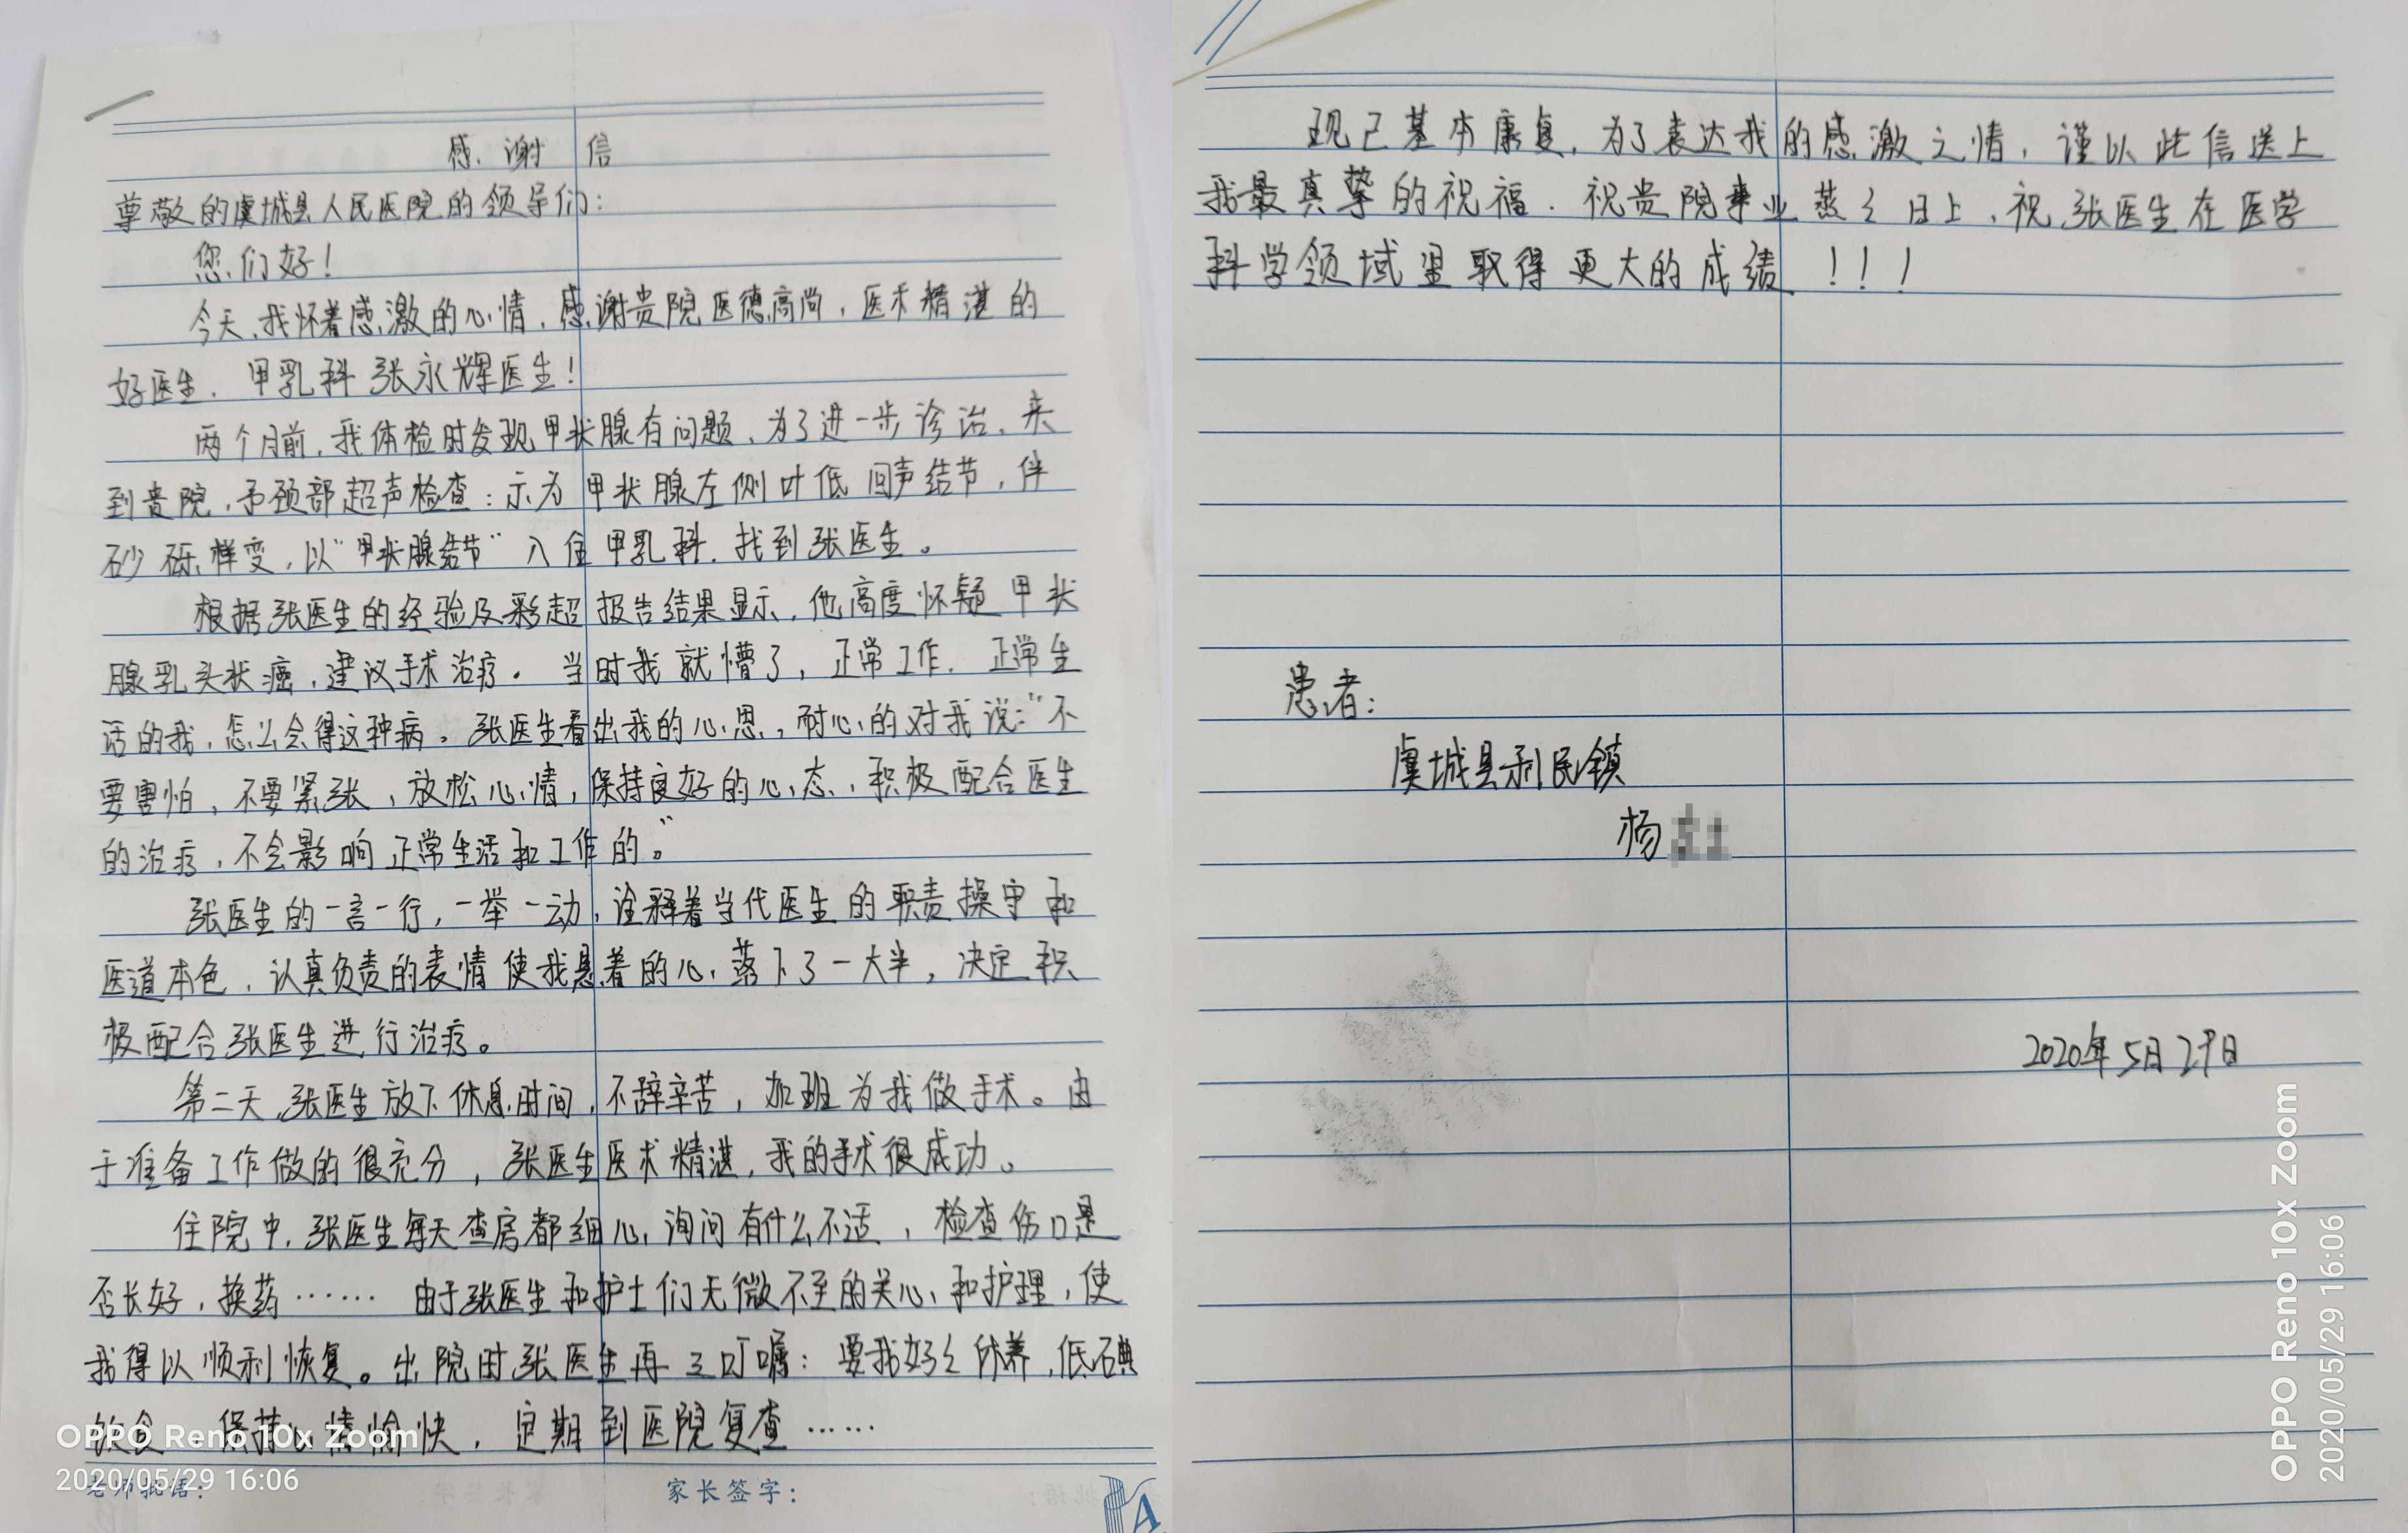 感谢信
尊敬的虞城县人民医院的领导们：
您们好！
今天，我怀着感激的心情，感谢贵院医德高尚，医术精湛的
好医生．甲乳科张永辉医生！
两个月前，我体检时发现甲状腺有问题，为了进一步诊治，来
到贵院，予颈部超声检查：示为甲状腺左侧叶低回声结节，伴
砂砾样变，以“甲状腺结节”入住甲乳科．找到张医生。
根据张医生的经验及彩超报告结果显示，他高度怀疑甲状
腺乳头状癌，建议手术治疗。当时我就懵了，正常工作．正常生
活的我，怎么会得这种病。张医生看出我的心思，耐心的对我说：“不
要害怕，不要紧张，放松心情，保持良好的心态，积极配合医生
的治疗，不会影响正常生活和工作的。”
张医生的一言一行，一举一动，诠释着当代医生的职责操守和
医道本色，认真负责的表情使我悬着的心落下了一大半，决定积
极配合张医生进行治疗。
第二天，张医生放下休息时间，不辞辛苦，加班为我做手术。由
于准备工作做的很充分，张医生医术精湛，我的手术很成功。
住院中，张医生每天查房都细心询问有什么不适，检查伤口是
否长好，换药……由于张医生和护士们无微不至的关心和护理，使
我得以顺利恢复。出院时张医生再三叮嘱：要我好々休养，低碘
饮食，保持心情愉快，定期到医院复查……
OPPO Reno 10x Zoom
2020/05/29 16:06
老师批语：
家长签字：
现已基本康复，为了表达我的感激之情，谨以此信送上
我最真挚的祝福．祝贵院事业蒸々日上，祝张医生在医学
科学领域里取得更大的成绩！！！
患者：
虞城县利民镇
杨
2020年5月29日
OPPO Reno 10x Zoom
2020/05/29 16:06